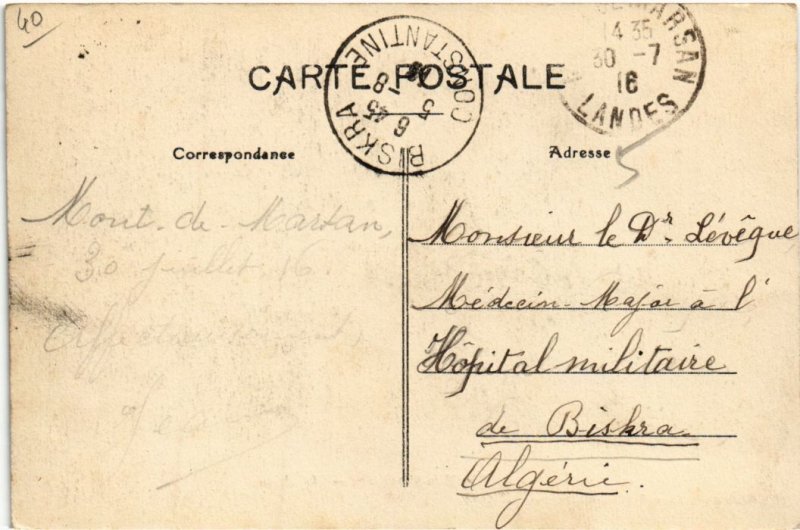 40
CARTE POSTALE
BISKRA CONSTANTINE
6 45
5 -8
MARSAN
14 35
30 -7
16
LANDES
Correspondance
Adresse
Mont-de-Marsan,
30 juillet 16.
Affectueusement,
Monsieur le Dr. Lévêque
Médecin-Major à l'
Hôpital militaire
de Biskra
Algérie.